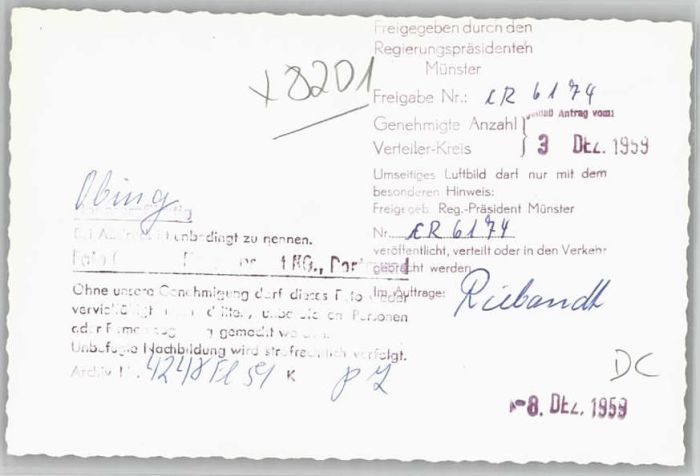 x 8201
Freigegeben durch den
Regierungspräsidenten
Münster
Freigabe Nr.: CR 6174
Genehmigte Anzahl
Verteiler-Kreis
gemäß Antrag vom:
3 DEZ. 1959
Umseitiges Luftbild darf nur mit dem
besonderen Hinweis:
Freigegeb. Reg.-Präsident Münster
Nr. CR 6174
veröffentlicht, verteilt oder in den Verkehr
gebracht werden
Im Auftrage:
Obing
unbedingt zu nennen.
KG., Dortmund
Ohne unsere Genehmigung darf dieses Foto weder
vervielfältigt Personen
oder Firmen gemacht werden.
Unbefugte Nachbildung wird strafrechtlich verfolgt.
Archiv Nr. 4248 Fl 59 K P Z
DC
-8. DEZ. 1959